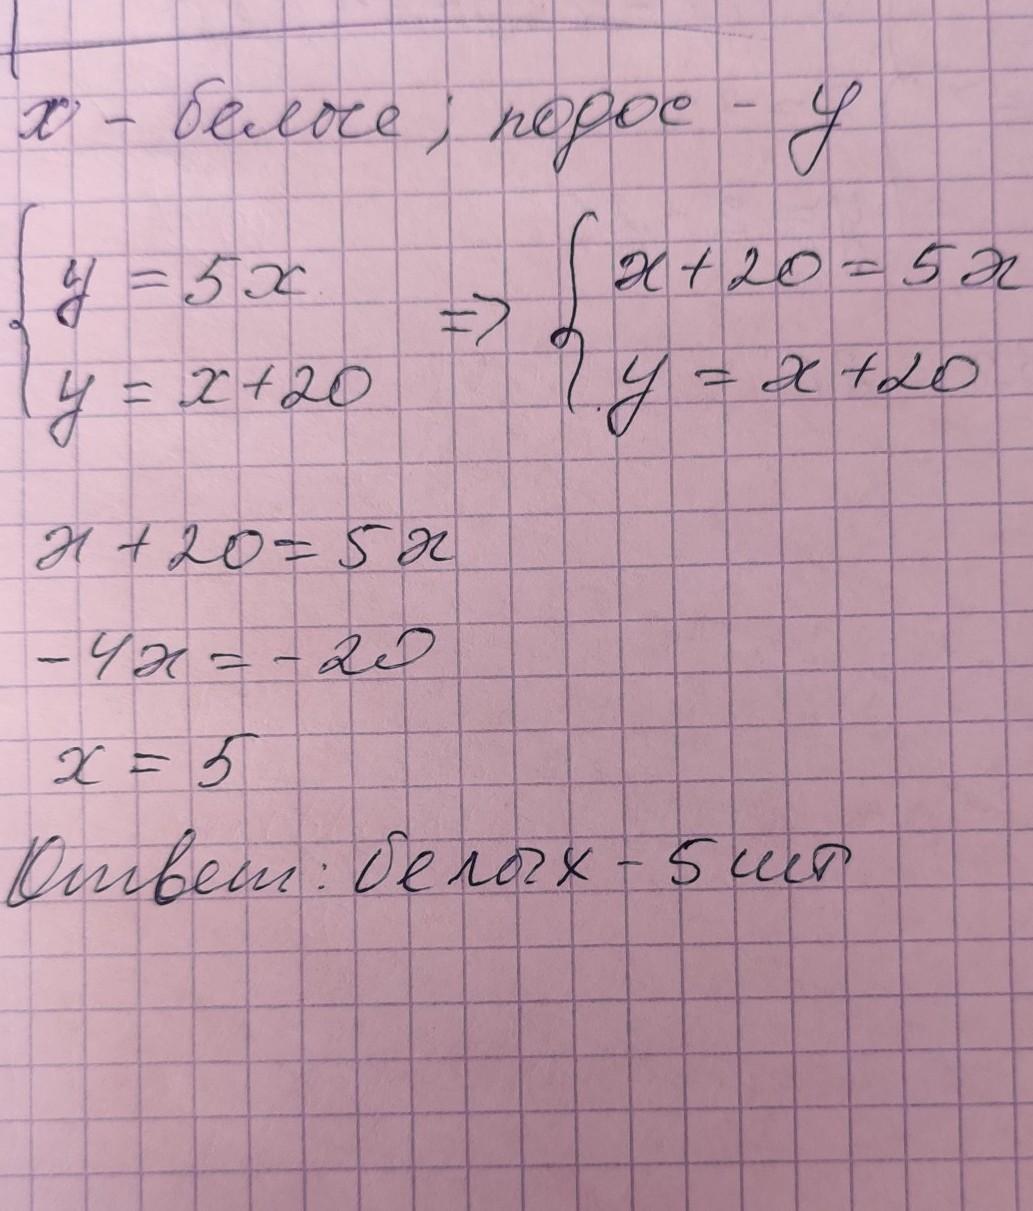 x - белые; подос - y
{ y = 5x => { x + 20 = 5x
y = x + 20 y = x + 20
x + 20 = 5x
- 4x = - 20
x = 5
Ответ: белых - 5 шт